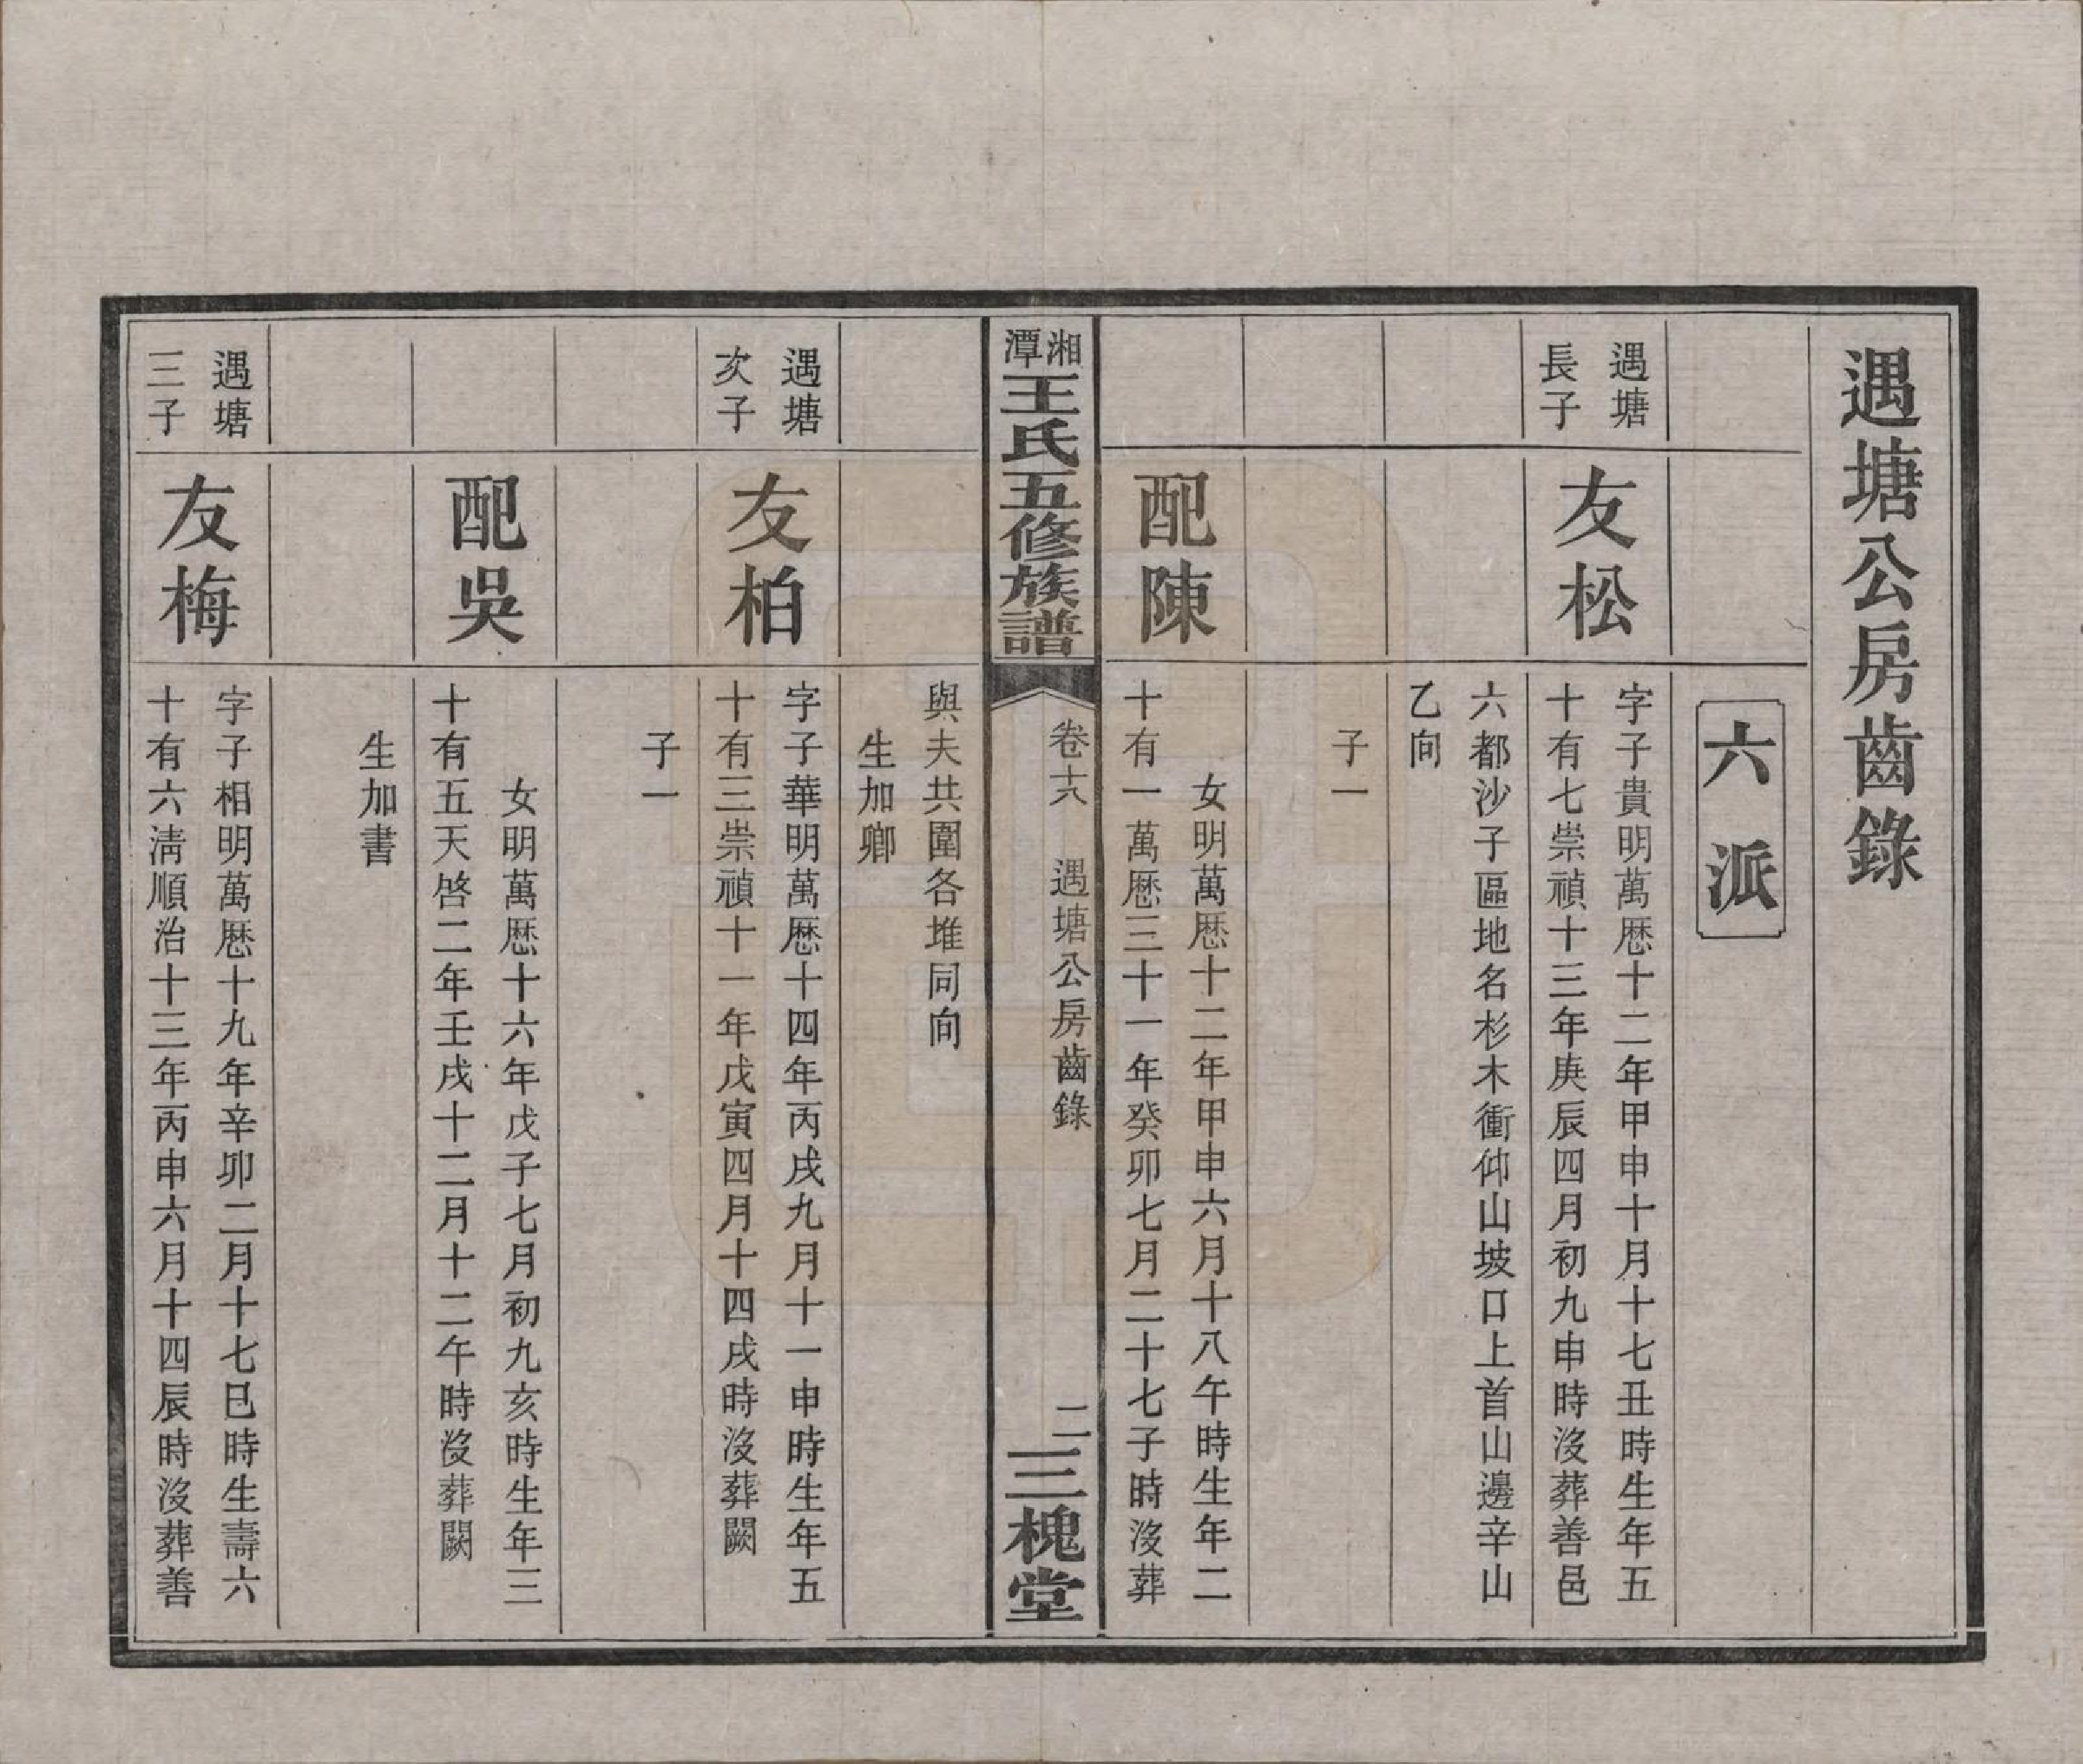 遇塘公房齒錄
六派
遇塘
長子
友松
字子貴明萬厯十二年甲申十月十七丑時生年五
十有七崇禎十三年庚辰四月初九申時沒葬善邑
六都沙子區地名杉木衝仰山坡口上首山邊辛山
乙向
子一
配陳
女明萬厯十二年甲申六月十八午時生年二
十有一萬厯三十一年癸卯七月二十七子時沒葬
湘潭王氏五修族譜
卷十六
遇塘公房齒錄
二
三槐堂
與夫共圍各堆同向
生加鄉
遇塘
次子
友柏
字子華明萬厯十四年丙戌九月十一申時生年五
十有三崇禎十一年戊寅四月十四戌時沒葬闕
子一
配吳
女明萬厯十六年戊子七月初九亥時生年三
十有五天啓二年壬戌十二月十二午時沒葬闕
生加書
遇塘
三子
友梅
字子相明萬厯十九年辛卯二月十七巳時生壽六
十有六淸順治十三年丙申六月十四辰時沒葬善